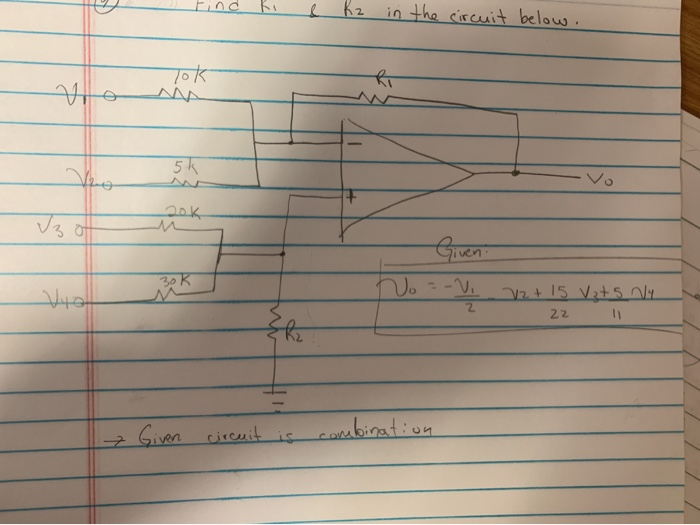 Find R1 & R2 in the circuit below.
10K
R1
V1
-
5k
V2
Vo
+
20K
V3
Given:
30K
Vo = -V1/2 - V2 + 15/22 V3 + 5/11 V4
V4
R2
→ Given circuit is combination